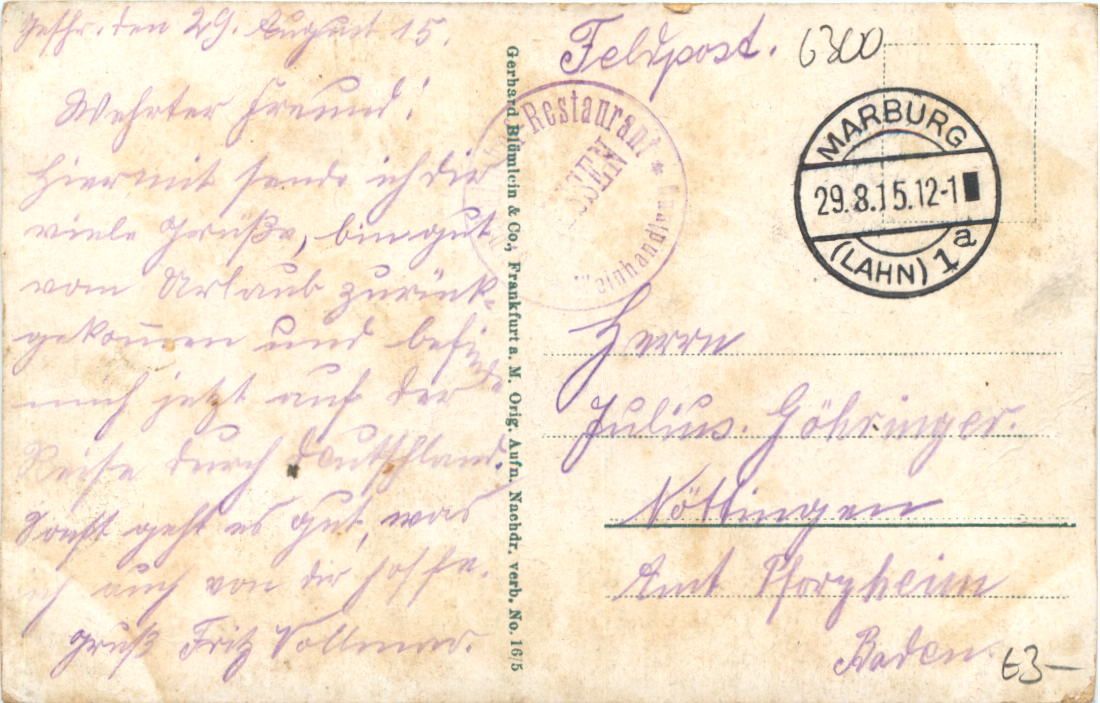 den 29. August 15.
Wehrter Freund!
Hiermit sende ich dir
viele Grüße, bin gut
vom Urlaub zurück-
gekommen und befinde
mich jetzt auf der
Reise durch Deutschland.
Sonst geht es gut, was
ich auch von dir hoffe.
Gruß Fritz Vollmer.
Gerhard Blümlein & Co., Frankfurt a. M. Orig. Aufn. Nachdr. verb. No. 16/5
Feldpost.
6300
Restaurant *
Weinhandlung
MARBURG
29.8.15.12-1
(LAHN) 1a
Herrn
Julius. Göhringer.
Nöttingen
Amt Pforzheim
Baden.
63-